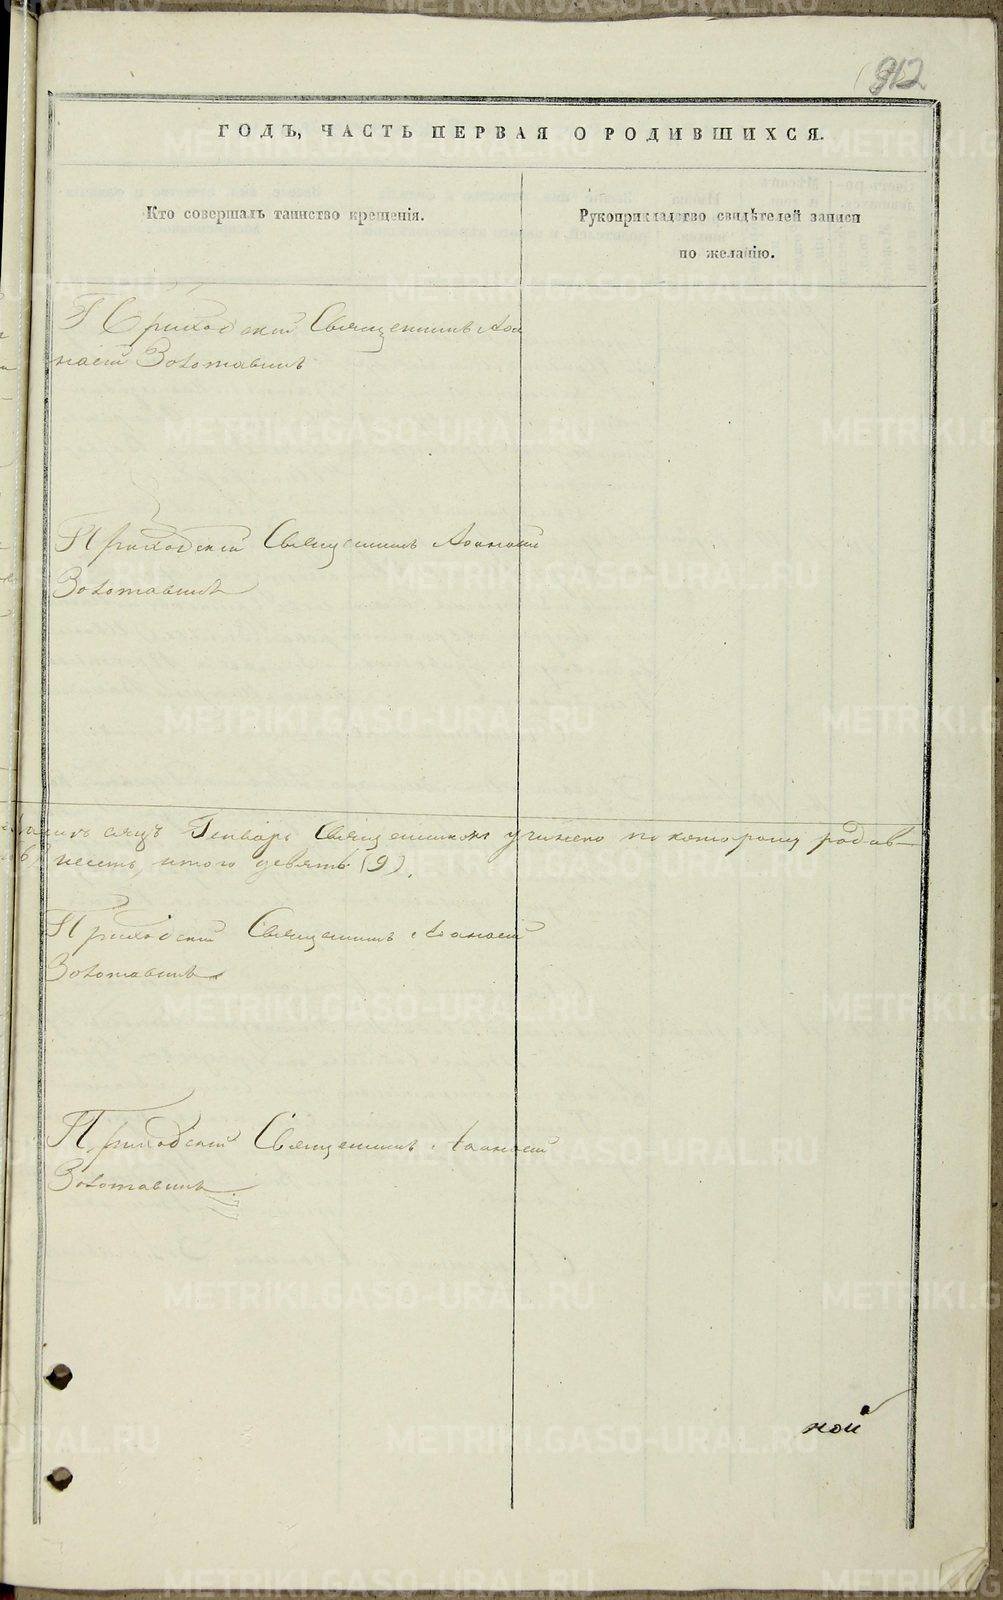 912
ГОДЪ, ЧАСТЬ ПЕРВАЯ О РОДИВШИХСЯ.
Кто совершалъ таинство крещенія.
Рукоприкладство свидѣтелей записи
по желанію.
Приходскій Священникъ Аѳа
насій Золотавинъ
Приходскій Священникъ Аѳанасій
Золотавинъ
Генварь Священникомъ учинено по которому родив
шесть, итого девять (9).
Приходскій Священникъ Аѳанасій
Золотавинъ
Приходскій Священникъ Аѳанасій
Золотавинъ
ной
METRIKI.GASO-URAL.RU